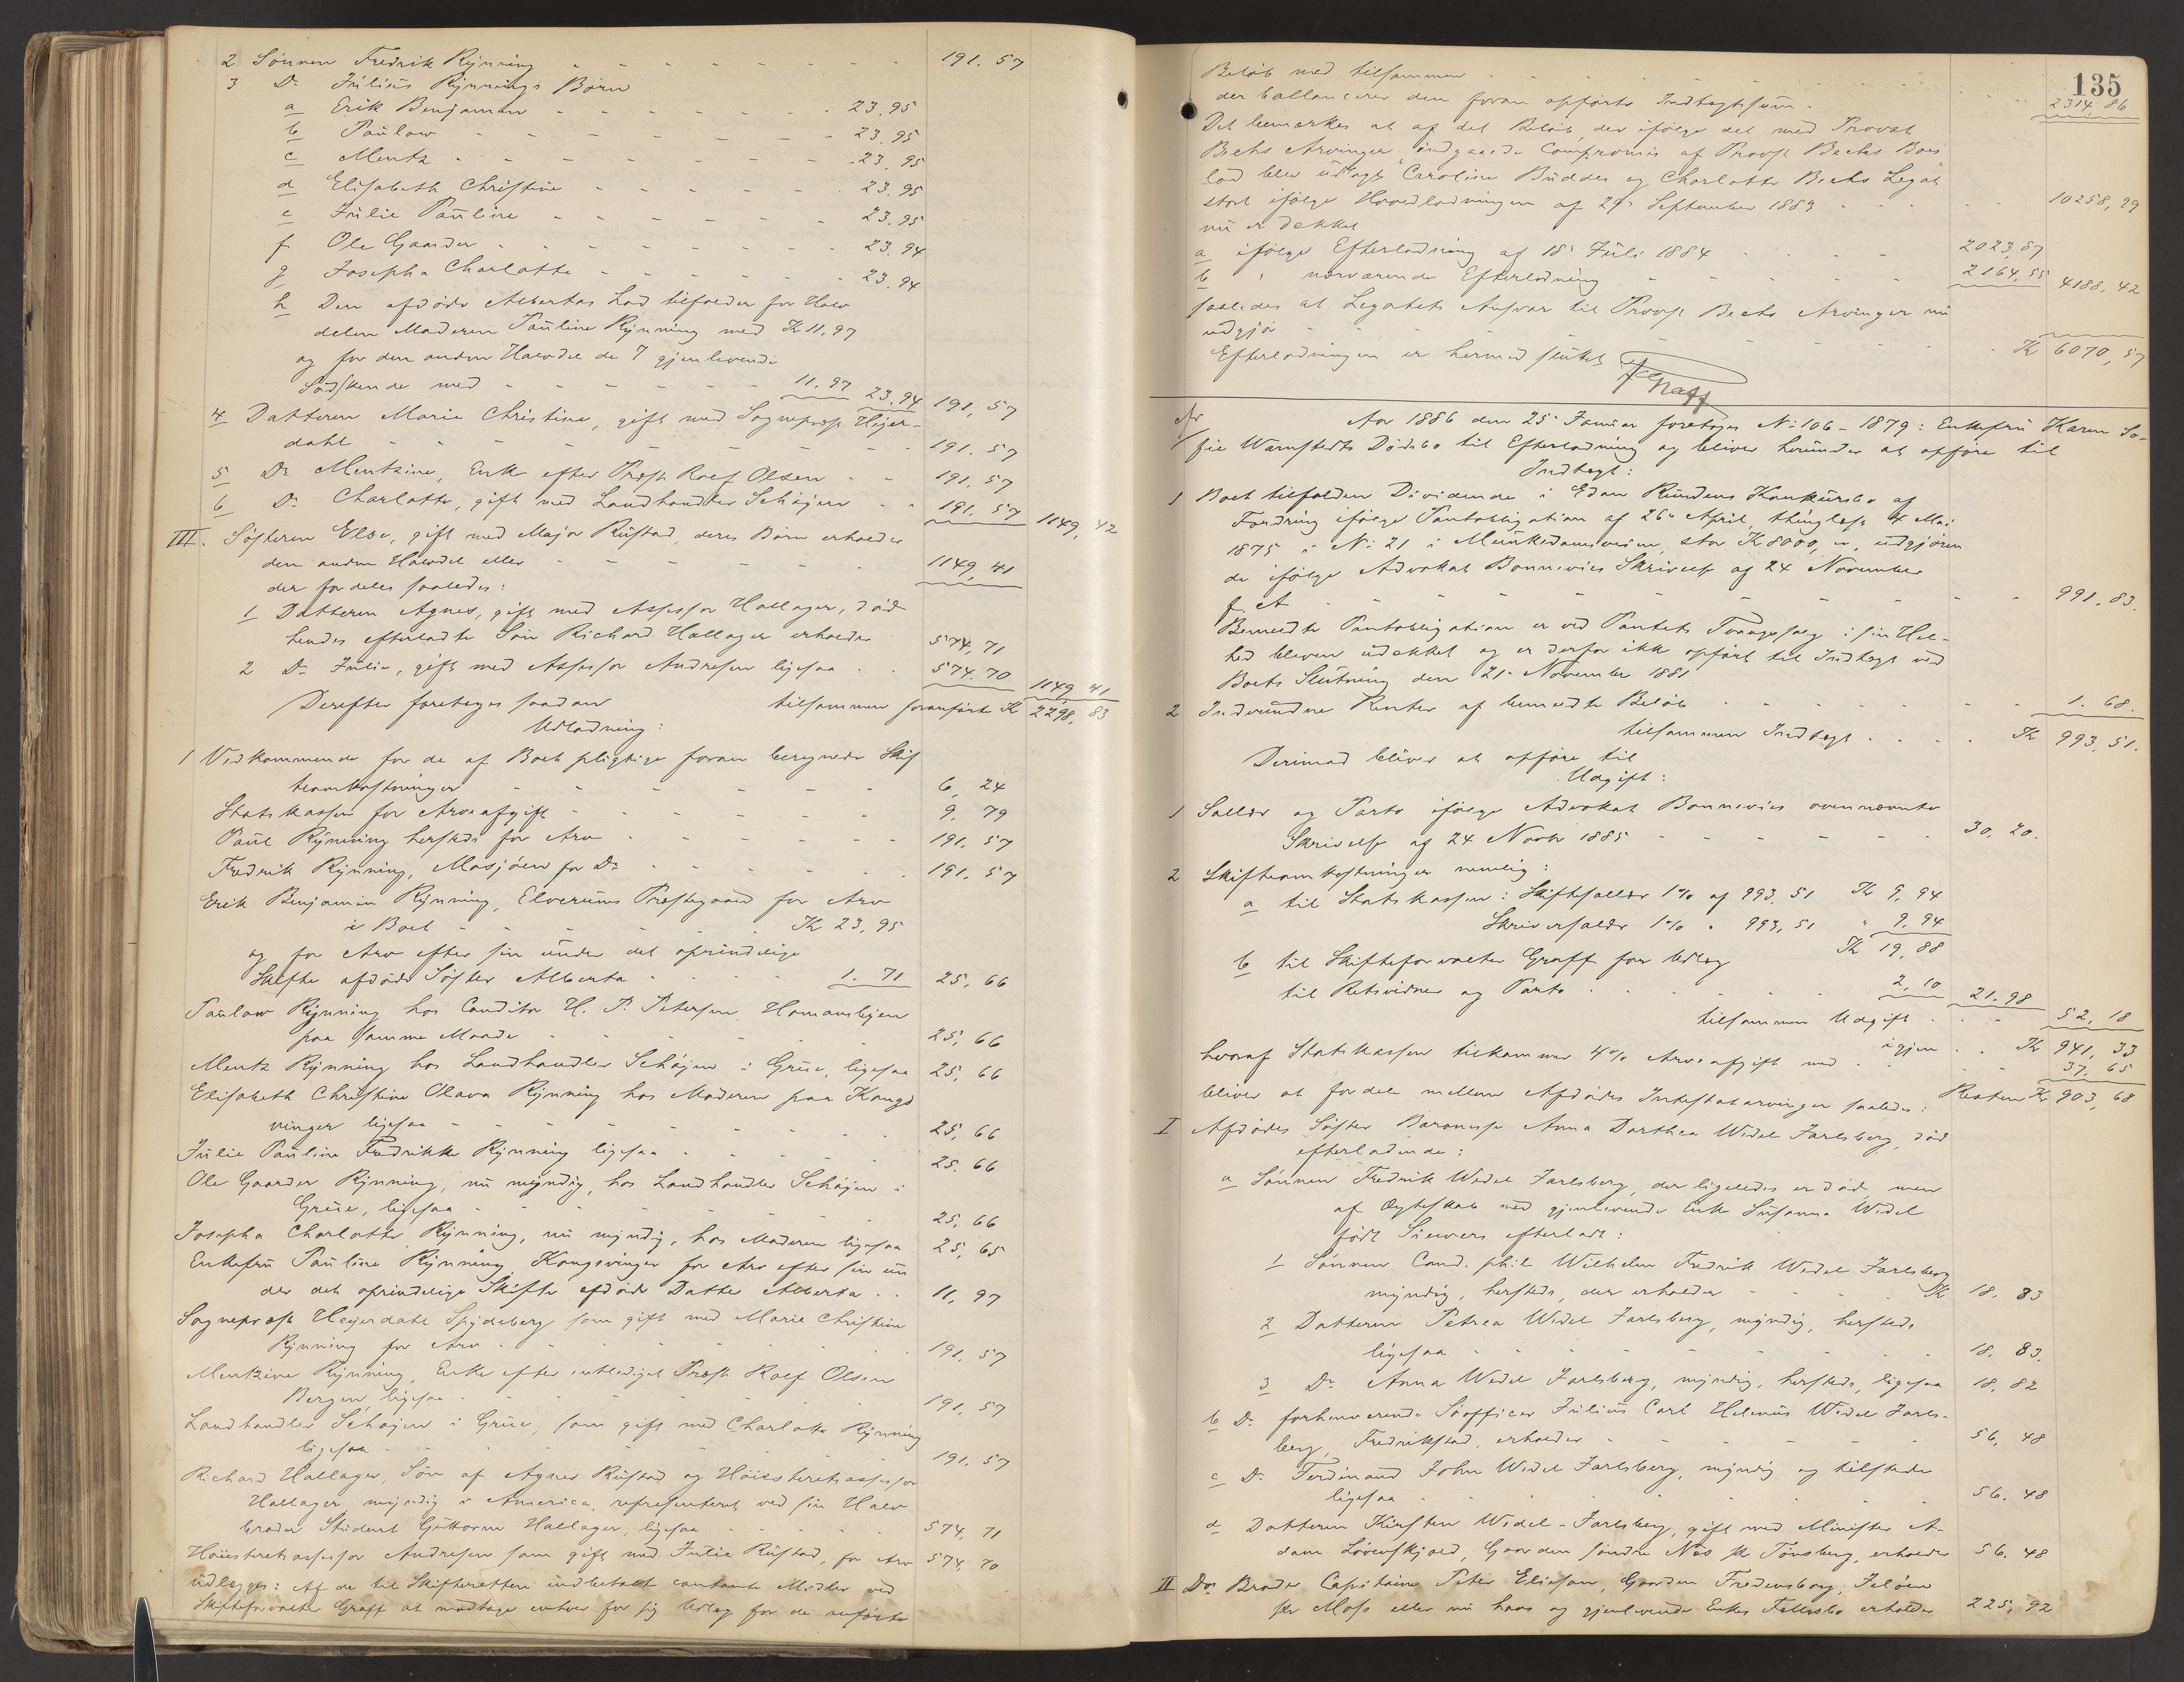 2 Sønnen Fredrik Rynning - - - - - - - - 191. 57
3 Do Julius Rynnings Børn
a Erik Benjamin - - - - - - - 23.95
b Paulaw - - - - - - - 23.95
c Mentz - - - - - - - 23,95
d Elisabeth Christine - - - - - 23.95
e Julie Pauline - - - - - - 23.95
f Ole Gaarder - - - - - - - 23.94
g Josepha Charlotte - - - - - - 23.94
h Den afdøde Albertas Lod tilfalder for Halv
delen Moderen Pauline Rynning med Kr 11.97
og for den anden Halvdel de 7 gjenlevende
Sødskende med - - - - - - 11.97 23.94 191, 57
4 Datteren Marie Christine, gift med Sogneprest Heijer-
dahl - - - - - - - - 191. 57
5 Do Mentzine, Enke efter Prest Rolf Olsen - - 191. 57
6 Do Charlotte, gift med Landhandler Schøjen - - 191. 57 1149, 42
III. Søsteren Else, gift med Major Rustad, deres Børn erholder
den anden Halvdel eller - - - - - - 1149, 41
der fordeles saaledes:
1 Datteren Agnes, gift med Assessor Hallager, død
hendes efterladte Søn Richard Hallager erholder 574, 71
2 Do Julie, gift med Assessor Andresen ligesaa . . 574. 70 1149, 41
tilsammen foranførte Kr 2298, 83
Derefter foretoges saadan
Udlodning:
1 Vedkommende for de af Boet pligtige foran beregnede Skif
teomkostninger - - - - - - 6, 24
Statskassen for Arveafgift - - - - - - 9, 79
Paul Rynning hersteds for Arv - - - - - 191. 57
Fredrik Rynning, Mosjøen for Do - - - - - 191. 57
Erik Benjamin Rynning, Elverums Prestegaard for Arv
i Boet - - - - - - Kr 23.95
og for Arv efter sin under det oprindelige
Skifte afdøde Søster Alberta - - - - 1. 71 25, 66
Paulaw Rynning hos Conditor H. P. Petersen, Homansbyen
paa samme Maade - - - - - - 25, 66
Mentz Rynning hos Landhandler Schøjen i Grue, ligesaa 25, 66
Elisabeth Christine Olava Rynning hos Moderen paa Kongs
vinger ligesaa - - - - - - - - 25, 66
Julie Pauline Fredrikke Rynning ligesaa - - - - 25. 66
Ole Gaarder Rynning, nu myndig, hos Landhandler Schøjen i
Grue, ligesaa - - - - - - - 25, 66
Josepha Charlotte Rynning, nu myndig, hos Moderen ligesaa 25, 65
Enkefru Pauline Rynning, Kongsvinger for Arv efter sin un
der det oprindelige Skifte afdøde Datter Alberta . . 11, 97
Sogneprest Heijerdahl Spydeberg som gift med Marie Christine
Rynning for Arv - - - - - - - 191, 57
Mentzine Rynning, Enke efter entlediget Prest Rolf Olsen
Bergen, ligesaa - - - - - - - 191. 57
Landhandler Schøjen i Grue, som gift med Charlotte Rynning
ligesaa - - - - - - - - 191. 57
Richard Hallager, Søn af Agnes Rustad og Høiesteretsassessor
Hallager, myndig i America, representeret ved sin Halv
broder Student Guttorm Hallager, ligesaa - - - - 574, 71
Høiesteretsassessor Andresen som gift med Julie Rustad, for Arv 574, 70
udlægges: Af de til Skifteretten indbetalte contante Midler ved
Skifteforvalter Graff at modtage enhver for sig Udlæg for de anførte
135
Beløb med tilsammen - - - - - - - 2314, 86
der ballancerer den foran opførte Indtægtssum.
Det bemærkes at af det Beløb, der ifølge det med Provst
Bechs Arvinger indgaaede Compromis af Provst Bechs Boes
lod blev udlagt "Caroline Buddes og Charlotte Bechs Legat"
stort ifølge Hovedlodningen af 29' September 1883 - - - 10258, 99
nu er dækket
a ifølge Efterlodning af 18' Juli 1884 - - - - 2023, 87
b " nærværende Efterlodning - - - - - 2164, 55 4188, 42
saaledes at Legatets Ansvar til Provst Bechs Arvinger nu
udgjør - - - - - - - - - Kr 6070, 57
Efterlodningen er hermed sluttet
Graff
Aar 1886 den 25' Januar foretoges No 106 - 1879: Enkefru Karen So-
fie Warnstedts Dødsbo til Efterlodning og bliver herunder at opføre til
Indtægt:
1 Boet tilfalden Dividende i Edan Rundens Konkursbo af
Fordring ifølge Pantobligation af 26' April, thinglæst 4 Mai
1875 i No 21 i Munkedamsveien, stor Kr 8000, ", udgjøren
de ifølge Advokat Bonnevies Skrivelse af 24 November
f. A. - - - - - - - - - - 991. 83.
Bemeldte Pantobligation er ved Pantets Tvangssalg i sin Hel-
hed bleven udækket og er derfor ikke opført til Indtægt ved
Boets Slutning den 21' November 1881
2 Indvundne Renter af bemeldte Beløb - - - - - - 1. 68.
tilsammen Indtægt . . . . Kr 993. 51.
Derimod bliver at opføre til
Udgift:
1 Sallær og Porto ifølge Advokat Bonnevies ovennævnte
Skrivelse af 24 Novbr 1885 - - - - - - 30, 20.
2 Skifteomkostninger nemlig:
a til Statskassen: Skiftesallær 1% af 993. 51 Kr 9, 94
Skriversalær 1% " 993, 51 " 9. 94
Kr 19, 88
b til Skifteforvalter Graff for Udlæg
til Retsvidner og Porto - - - - - 2, 10 21. 98
tilsammen Udgift - - - 52, 18
igjen . . Kr 941, 33
hvoraf Statskassen tilkommer 4% Arveafgift med - - - - 37. 65
Resten Kr 903, 68
bliver at fordele mellem Afdødes Intestatarvinger saaledes:
I Afdødes Søster Baronesse Anna Dorthea Wedel Jarlsberg, død
efterladende:
a Sønnen Fredrik Wedel Jarlsberg, der ligeledes er død, men
af Ægteskab med gjenlevende Enke Susanna Wedel
født Siewers efterladt:
1 Sønnen Cand. phil. Wilhelm Fredrik Wedel Jarlsberg
myndig, hersteds, der erholder - - - - - Kr 18. 83
2 Datteren Petrea Wedel Jarlsberg, myndig, hersteds
ligesaa - - - - - - - - 18. 83.
3 Do Anna Wedel Jarlsberg, myndig, hersteds, ligesaa 18, 82
b Do forhenværende Søofficer Julius Carl Helenus Wedel Jarls-
berg, Fredrikstad, erholder - - - - - - 56, 48
c Do Ferdinand John Wedel Jarlsberg, myndig og tilstede
ligesaa - - - - - - - - 56. 48
d Datteren Kirsten Wedel-Jarlsberg, gift med Minister A-
dam Løvenskjold, Gaarden søndre Næs pr Tønsberg, erholder 56. 48
II Dos Broder Capitaine Peter Elieson, Gaarden Fredensborg, Jeløen
pr Moss eller nu hans og gjenlevende Enkes Fællesbo erholder 225, 92